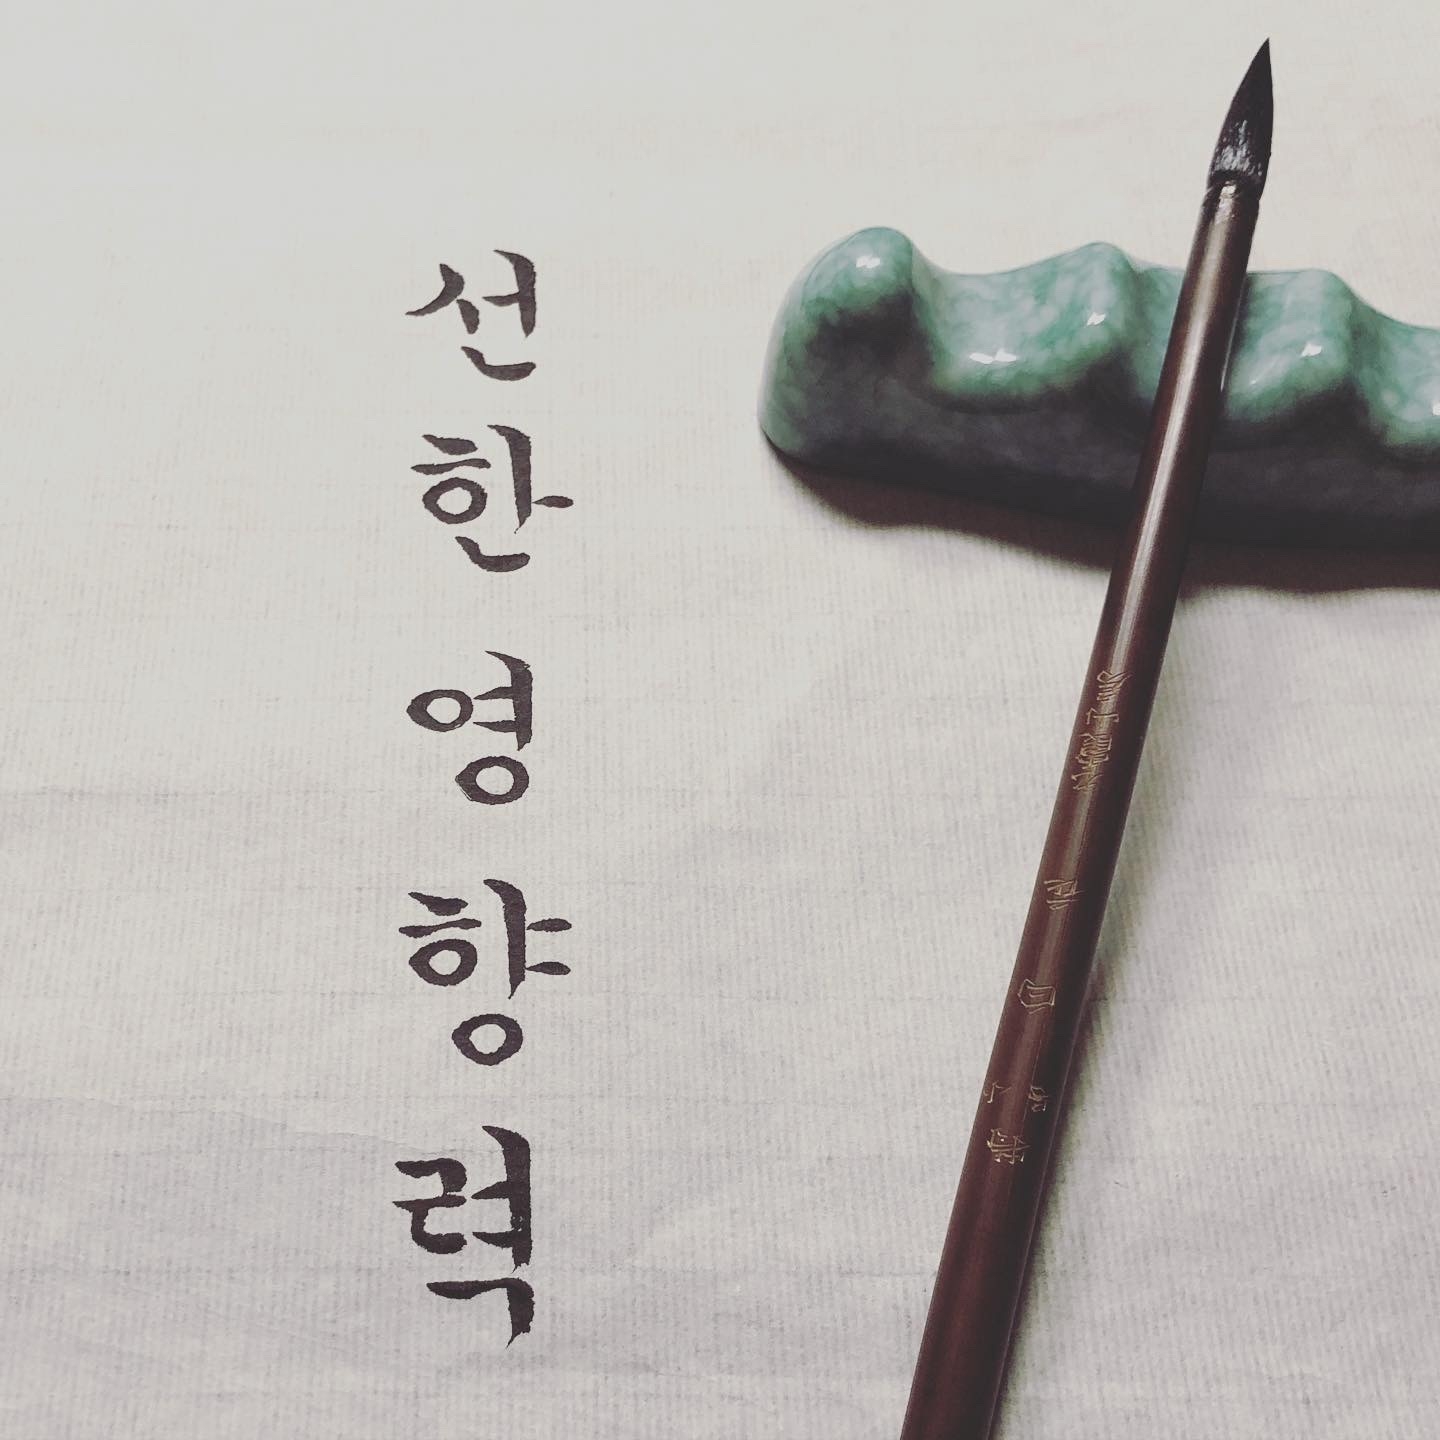 선한영향력